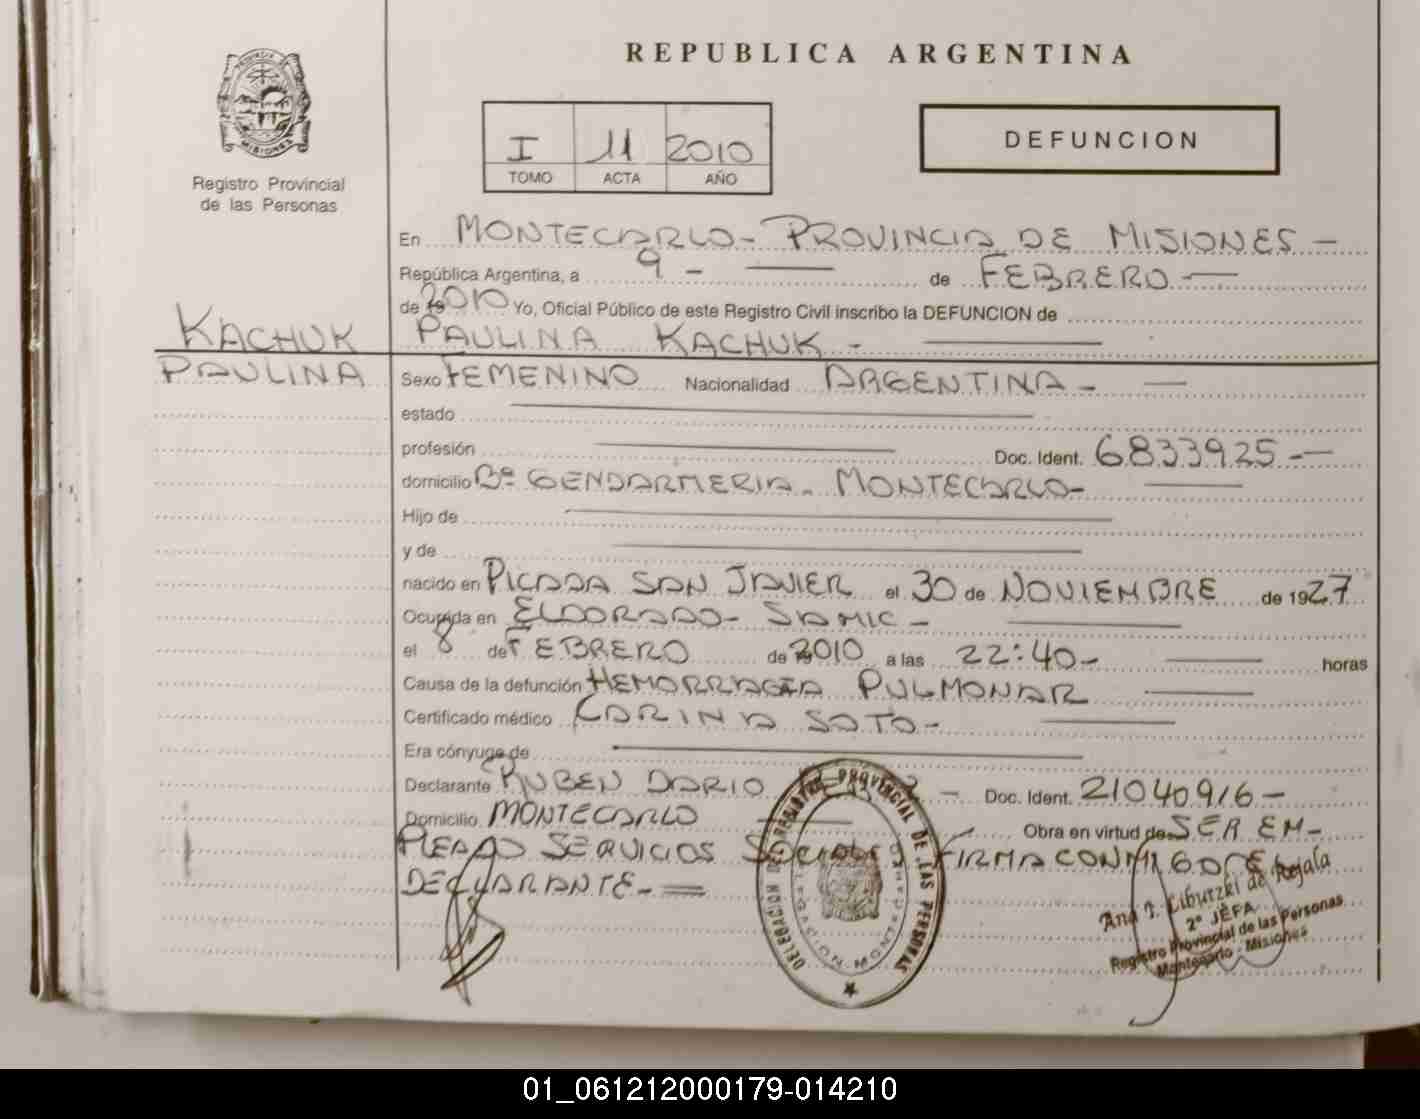 REPUBLICA ARGENTINA
PROVINCIA DE MISIONES
Registro Provincial
de las Personas
I 11 2010
TOMO ACTA AÑO
DEFUNCION
En MONTECARLO - PROVINCIA DE MISIONES -
República Argentina, a 9 - de FEBRERO -
de 2010 Yo, Oficial Público de este Registro Civil inscribo la DEFUNCION de
KACHUK
PAULINA
PAULINA KACHUK -
Sexo FEMENINO Nacionalidad ARGENTINA -
estado
profesión Doc. Ident. 6833925 -
domicilio Bº GENDARMERIA - MONTECARLO -
Hijo de
y de
nacido en PICADA SAN JAVIER el 30 de NOVIEMBRE de 1927
Ocurrida en ELDORADO - SAMIC -
el 8 de FEBRERO de 2010 a las 22:40 - horas
Causa de la defunción HEMORRAGIA PULMONAR
Certificado médico CARINA SOTO -
Era cónyuge de
Declarante RUBEN DARIO - Doc. Ident. 21040916 -
Domicilio MONTECARLO Obra en virtud de SER EM-
PLEADO SERVICIOS SOCIALES FIRMA CONMIGO EL
DECLARANTE -
DELEGACION DEL REGISTRO PROVINCIAL DE LAS PERSONAS
Ana I. Liburzki de
2º JEFA
Registro Provincial de las Personas
Montecarlo - Misiones
01_061212000179-014210